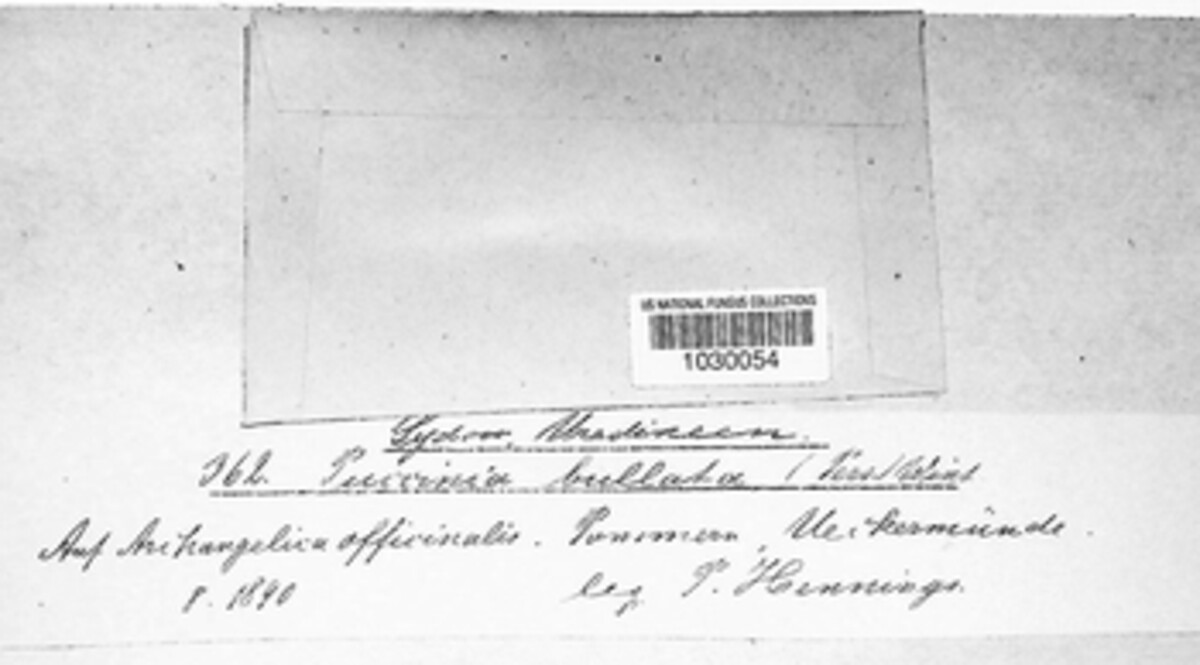 US NATIONAL FUNGUS COLLECTIONS
1030054
Sydow, Uredineen.
362. Puccinia bullata (Pers) Wint
Auf Archangelica officinalis. Pommern, Ueckermünde.
8. 1890
leg P. Hennings.